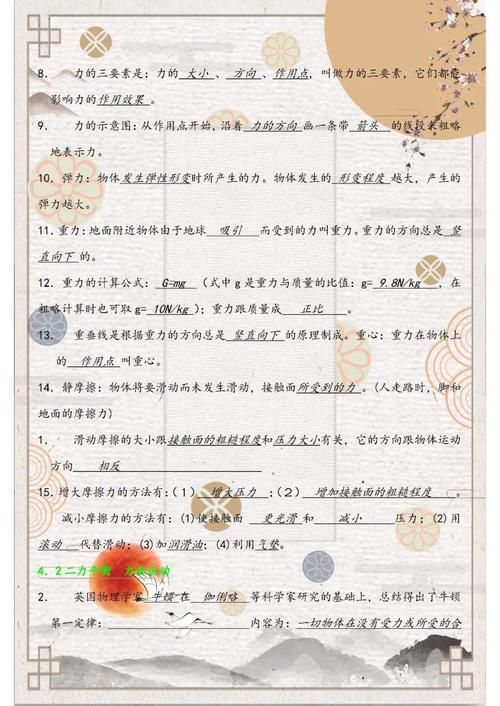 8． 力的三要素是：力的 大小 、 方向 、作用点，叫做力的三要素，它们都能
影响力的 作用效果 。
9． 力的示意图：从作用点开始，沿着 力的方向 画一条带 箭头 的线段来粗略
地表示力。
10．弹力：物体发生弹性形变时所产生的力。物体发生的 形变程度 越大，产生的
弹力越大。
11．重力：地面附近物体由于地球 吸引 而受到的力叫重力。重力的方向总是 竖
直向下 的。
12．重力的计算公式： G=mg （式中 g 是重力与质量的比值：g= 9.8N/kg ，在
粗略计算时也可取 g= 10N/kg ）；重力跟质量成 正比 。
13． 重垂线是根据重力的方向总是 竖直向下 的原理制成。重心：重力在物体上
的 作用点 叫重心。
14．静摩擦：物体将要滑动而未发生滑动，接触面所受到的力 。（人走路时，脚和
地面的摩擦力）
1． 滑动摩擦的大小跟接触面的粗糙程度和压力大小有关，它的方向跟物体运动
方向 相反
15．增大摩擦力的方法有：（1） 增大压力 ；（2） 增加接触面的粗糙程度 。
减小摩擦力的方法有：(1)使接触面 更光滑 和 减小 压力；(2)用
滚动 代替滑动；(3)加润滑油；(4)利用气垫。
4．2 二力平衡 力和运动
2． 英国物理学家 牛顿 在 伽俐略 等科学家研究的基础上，总结得出了牛顿
第一定律： 内容为： 一切物体在没有受力或所受的合